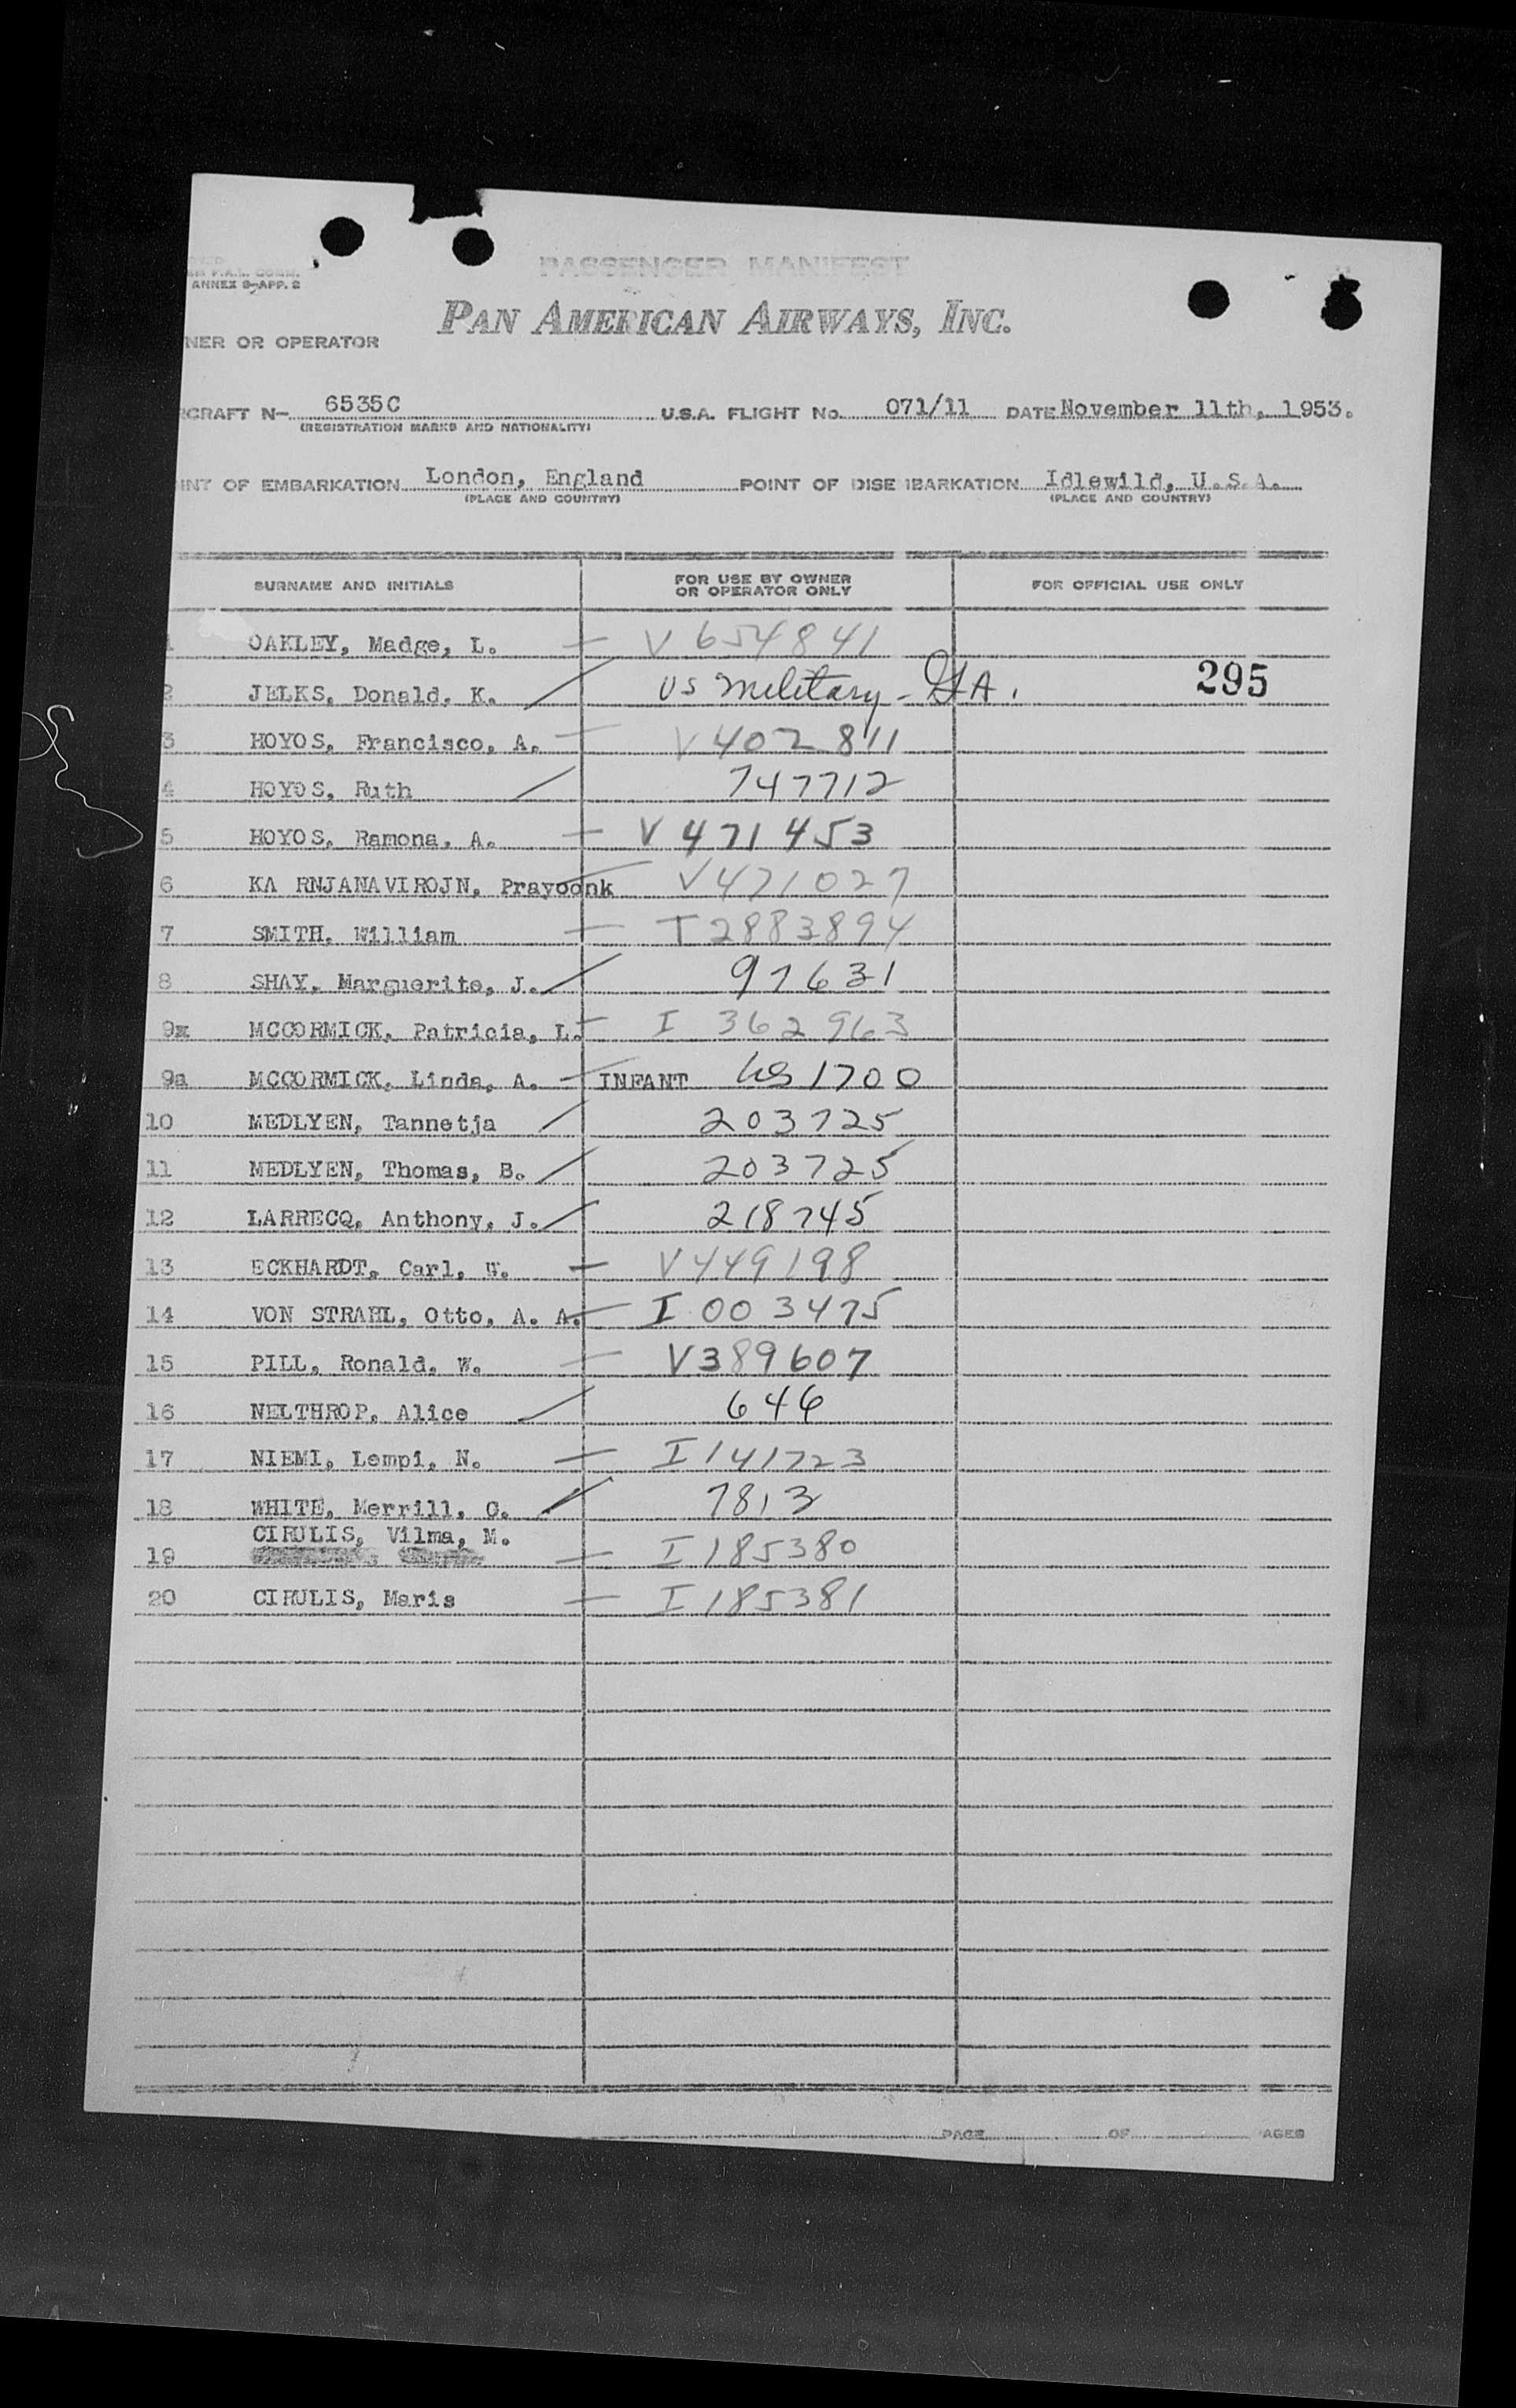 PASSENGER MANIFEST
ANNEX 9-APP. 2
PAN AMERICAN AIRWAYS, INC.
NER OR OPERATOR
RCRAFT N- 6535C U.S.A. FLIGHT No. 071/11 DATE November 11th, 1953.
(REGISTRATION MARKS AND NATIONALITY)
INT OF EMBARKATION London, England POINT OF DISE IBARKATION Idlewild, U.S.A.
(PLACE AND COUNTRY) (PLACE AND COUNTRY)
SURNAME AND INITIALS FOR USE BY OWNER OR OPERATOR ONLY FOR OFFICIAL USE ONLY
1 OAKLEY, Madge, L. V 654841
2 JELKS, Donald, K. US Military - 295
3 HOYOS, Francisco, A. V 402811
4 HOYOS, Ruth 747712
5 HOYOS, Ramona, A. V 471453
6 KA RNJANAVIROJN, Prayoonk V471027
7 SMITH, William I 2883894
8 SHAY, Marguerite, J. 97631
9x MCCORMICK, Patricia, L. I 362963
9a MCCORMICK, Linda, A. INFANT 1700
10 MEDLYEN, Tannetja 203725
11 MEDLYEN, Thomas, B. 203725
12 LARRECQ, Anthony, J. 218745
13 ECKHARDT, Carl, W. V449198
14 VON STRAHL, Otto, A. A. I 003475
15 PILL, Ronald, W. V389607
16 NELTHROP, Alice 646
17 NIEMI, Lempi, N. I 141723
18 WHITE, Merrill, G. 7813
CIRULIS, Vilma, M.
19 I 185380
20 CIRULIS, Maris I 185381
PAGE OF AGES